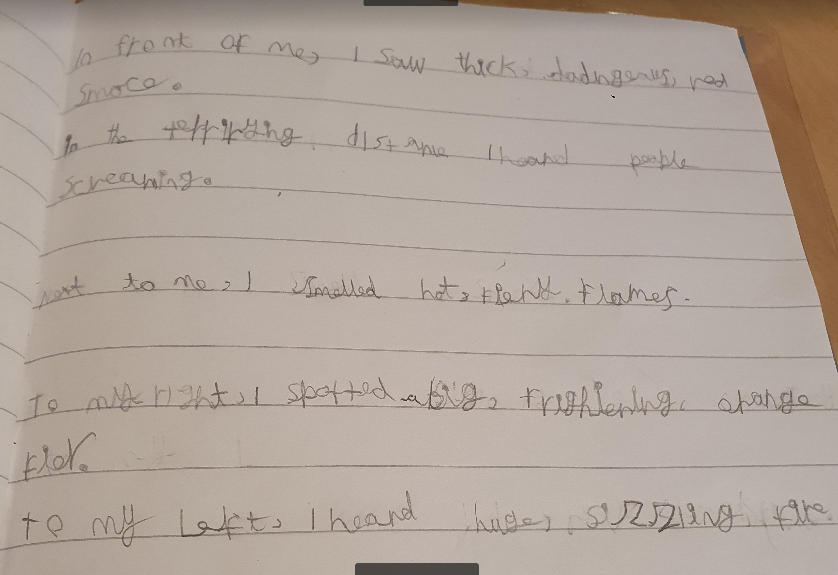 In front of me, I saw thick, dadngerus, red
smoce.
In the terrifying distance I heard people
screaming.
next to me, I smelled hot, fieny. flames.
To my right, I spotted a big, frightening, orange
To my left, I heard huge, sizzling fire.